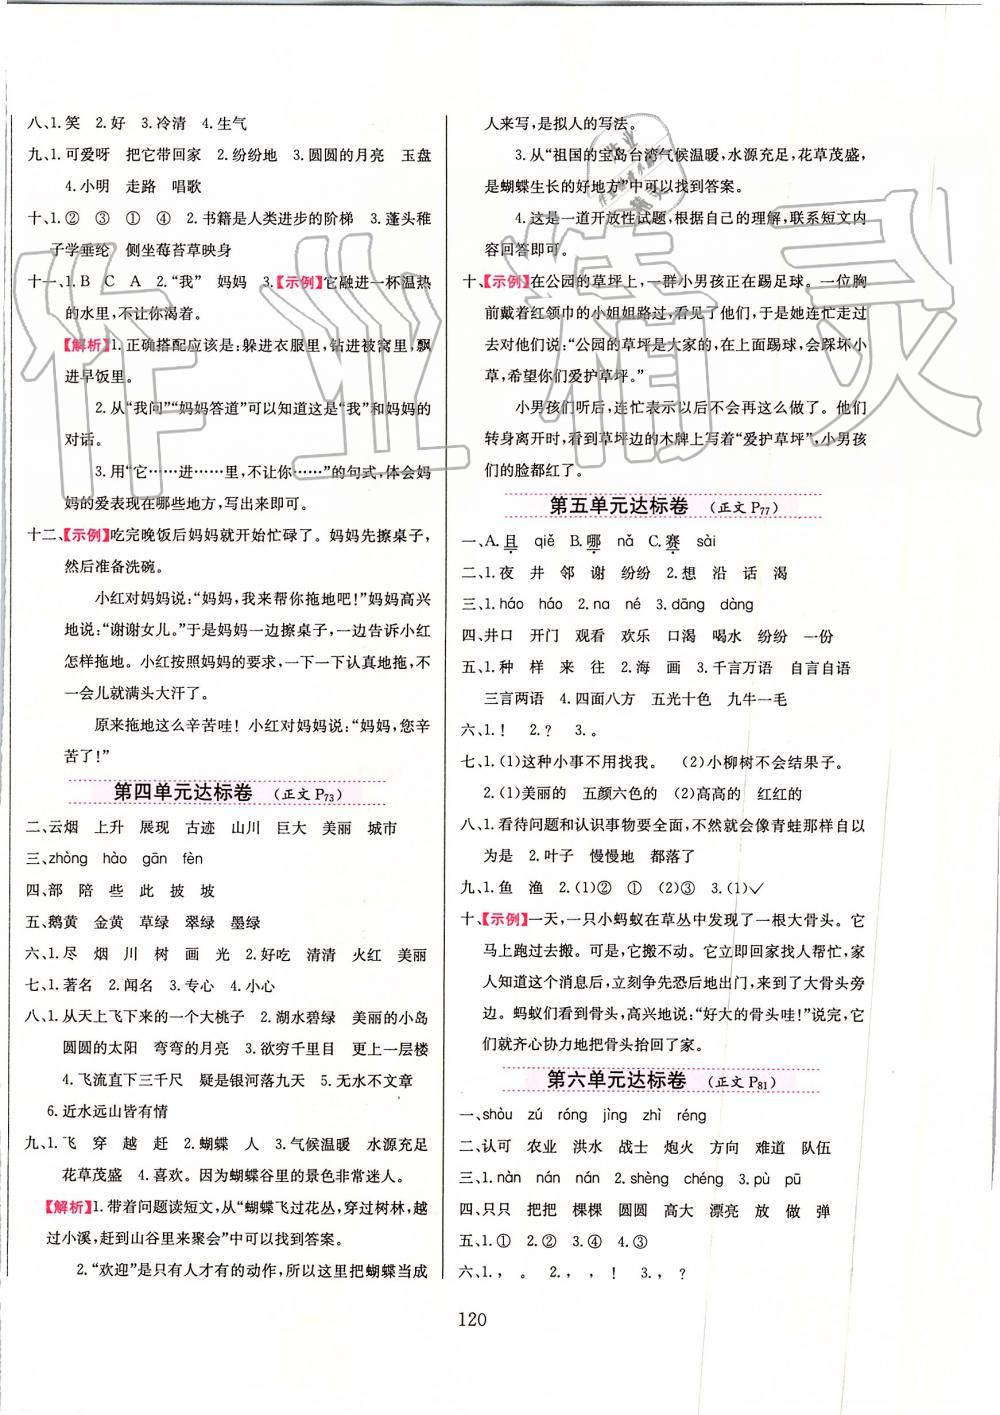 八、1.笑 2.好 3.冷清 4.生气
九、1.可爱呀 把它带回家 2.纷纷地 3.圆圆的月亮 玉盘
4.小明 走路 唱歌
十、1.② ③ ① ④ 2.书籍是人类进步的阶梯 3.蓬头稚
子学垂纶 侧坐莓苔草映身
十一、1.B C A 2.“我” 妈妈 3.【示例】它融进一杯温热
的水里,不让你渴着。
【解析】1.正确搭配应该是:躲进衣服里,钻进被窝里,飘
进早饭里。
2.从“我问”“妈妈答道”可以知道这是“我”和妈妈的
对话。
3.用“它……进……里,不让你……”的句式,体会妈
妈的爱表现在哪些地方,写出来即可。
十二、【示例】吃完晚饭后妈妈就开始忙碌了。妈妈先擦桌子,
然后准备洗碗。
小红对妈妈说:“妈妈,我来帮你拖地吧!”妈妈高兴
地说:“谢谢女儿。”于是妈妈一边擦桌子,一边告诉小红
怎样拖地。小红按照妈妈的要求,一下一下认真地拖,不
一会儿就满头大汗了。
原来拖地这么辛苦哇!小红对妈妈说:“妈妈,您辛
苦了!”
第四单元达标卷 (正文 P73)
二、云烟 上升 展现 古迹 山川 巨大 美丽 城市
三、zhòng hào gān fèn
四、部 陪 些 此 披 坡
五、鹅黄 金黄 草绿 翠绿 墨绿
六、1.尽 烟 川 树 画 光 2.好吃 清清 火红 美丽
七、1.著名 2.闻名 3.专心 4.小心
八、1.从天上飞下来的一个大桃子 2.湖水碧绿 美丽的小岛
圆圆的太阳 弯弯的月亮 3.欲穷千里目 更上一层楼
4.飞流直下三千尺 疑是银河落九天 5.无水不文章
6.近水远山皆有情
九、1.飞 穿 越 赶 2.蝴蝶 人 3.气候温暖 水源充足
花草茂盛 4.喜欢。因为蝴蝶谷里的景色非常迷人。
【解析】1.带着问题读短文,从“蝴蝶飞过花丛,穿过树林,越
过小溪,赶到山谷里来聚会”中可以找到答案。
2.“欢迎”是只有人才有的动作,所以这里把蝴蝶当成
人来写,是拟人的写法。
3.从“祖国的宝岛台湾气候温暖,水源充足,花草茂盛,
是蝴蝶生长的好地方”中可以找到答案。
4.这是一道开放性试题,根据自己的理解,联系短文内
容回答即可。
十、【示例】在公园的草坪上,一群小男孩正在踢足球。一位胸
前戴着红领巾的小姐姐路过,看见了他们,于是她连忙走过
去对他们说:“公园的草坪是大家的,在上面踢球,会踩坏小
草,希望你们爱护草坪。”
小男孩们听后,连忙表示以后不会再这么做了。他们
转身离开时,看到草坪边的木牌上写着“爱护草坪”,小男孩
们的脸都红了。
第五单元达标卷 (正文 P77)
一、A.且 qiě B.哪 nǎ C.赛 sài
二、1.夜 井 邻 谢 纷纷 2.想 沿 话 渴
三、1.háo háo 2.na né 3.dāng dàng
四、井口 开门 观看 欢乐 口渴 喝水 纷纷 一份
五、1.种 样 来 往 2.海 画 3.千言万语 自言自语
三言两语 4.四面八方 五光十色 九牛一毛
六、1.! 2.? 3.。
七、1.(1)这种小事不用我帮忙。 (2)小柳树不会不结果。
2.(1)美丽的 五颜六色的 (2)高高的 红红的
八、1.看待问题和认识事物要全面,不然就会像青蛙那样自以
为是 2.叶子 慢慢地 都落了
九、1.鱼 渔 2.(1)② ① (2)③ 3.(1)✓
十、【示例】一天,一只小蚂蚁在草丛中发现了一根大骨头。它
马上跑过去搬。可是,它搬不动。它立即回家找人帮忙,家
人知道这个消息后,立刻争先恐后地出门,来到了大骨头旁
边。蚂蚁们看到骨头,高兴地说:“好大的骨头哇!”说完,它
们就齐心协力地把骨头抬回了家。
第六单元达标卷 (正文 P81)
一、shòu zú róng jìng zhì réng
二、认可 农业 洪水 战士 炮火 方向 难道 队伍
三、1.nàn nán nán 2.shèng chéng 3.pù pū
四、只只 把把 棵棵 圆圆 高大 漂亮 放 做 弹
五、1.① 2.② 3.④ 4.③
六、1., 。 2., , ! 3., ?
120
作业精灵